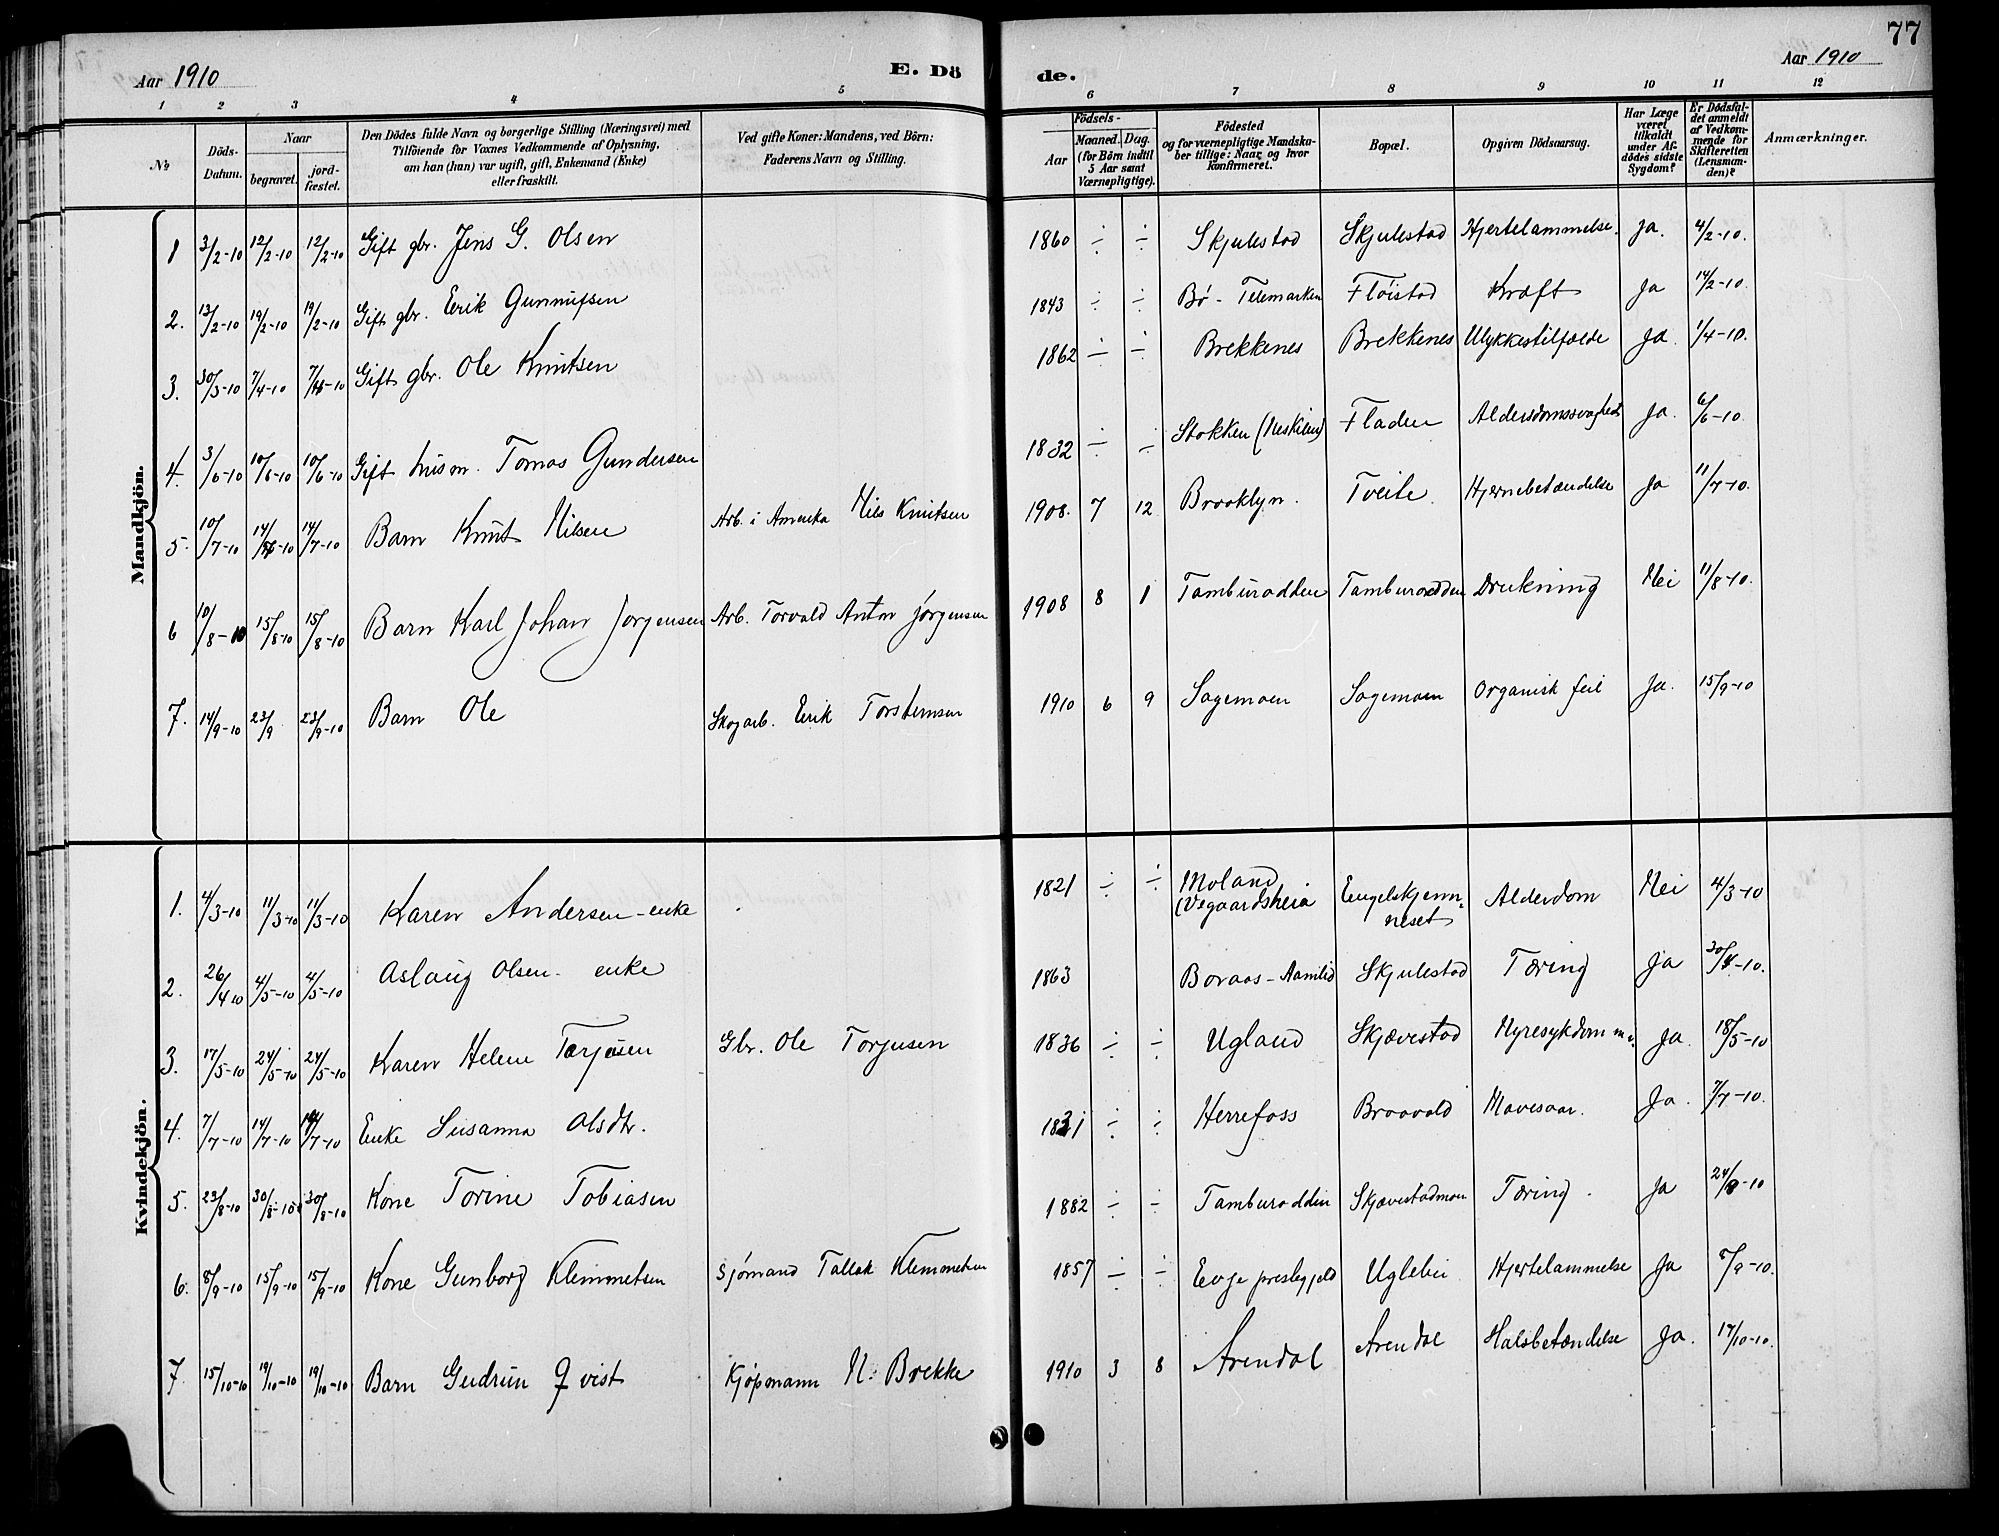 77
Aar 1910 E. Dö de. Aar 1910
1 2 3 4 5 6 7 8 9 10 11 12
No
Döds-Datum.
Naar
begravet. jord-fæstet.
Den Dödes fulde Navn og borgerlige Stilling (Næringsvei) med
Tilföiende for Voxnes Vedkommende af Oplysning,
om han (han) var ugift, gift, Enkemand (Enke)
eller fraskilt.
Ved gifte Koner: Mandens, ved Börn:
Faderens Navn og Stilling.
Födsels-
Aar Maaned. Dag.
(for Börn indtil
5 Aar samt
Værnepligtige).
Födested
og for værnepligtige Mandska-
ber tillige: Naar og hvor
konfirmeret.
Bopæl.
Opgiven Dödsaarsag.
Har Læge
været
tilkaldt
under Af-
dödes sidste
Sygdom?
Er Dödsfal-
det anmeldt
af Vedkom-
mende for
Skifteretten
(Lensman-
den)?
Anmærkninger.
Mandkjön.
1 3/2-10 12/2-10 12/2-10 Gift gbr. Jens G. Olsen 1860 ÷ ÷ Skjulestad Skjulestad Hjertelammelse. Ja. 4/2-10.
2. 13/2-10 19/2-10 19/2-10 Gift gbr. Erik Gunnufsen 1843 ÷ ÷ Bø - Telemarken Fløistad Kræft Ja 14/2-10.
3. 30/3-10 7/4-10 7/4-10 Gift gbr. Ole Knutsen 1862 ÷ ÷ Brekkenes Brekkenes Ulykkestilfælde Ja. 1/4-10.
4. 3/6-10 10/6-10 10/6-10 Gift husm. Tomas Gundersen 1832 ÷ ÷ Stokken (Neskilen) Fladen Aldersdomssvaghed Ja. 6/6-10.
5. 10/7-10 14/7-10 14/7-10 Barn Knut Nilsen Arb. i Amerika Nils Knutsen 1908. 7 12 Brooklyn. Tveite. Hjernebetændelse Ja 11/7-10.
6 10/8-10 15/8-10 15/8-10 Barn Karl Johan Jorgensen Arb. Torvald Anton Jørgensen 1908 8 1 Tamburodden Tamburodden Drukning Nei 11/8-10.
7. 14/9-10 23/9 23/9-10 Barn Ole Skogarb. Erik Torstensen 1910 6 9 Sagemoen Sagemoen Organisk feil Ja. 15/9-10
Kvindekjön.
1. 4/3-10 11/3-10 11/3-10 Karen Andersen - enke 1821 ÷ ÷ Moland (Vegaardsheia Engelskjenn-neset Alderdom Nei 4/3-10
2. 26/4 10 4/5-10 4/5-10 Aslaug Olsen - enke 1863 Boraas - Aamlid Skjulestad Tæring Ja 30/4-10.
3. 17/5-10 24/5-10 24/5-10 Karen Helene Torjusen Gbr. Ole Torjusen 1836 ÷ ÷ Ugland Skjævestad Nyresykdom m. Ja. 18/5-10
4. 7/7-10 14/7-10 14/7-10 Enke Susanna Olsdtr. 1821 ÷ ÷ Herrefoss Braavold Mavesaar. Ja. 7/7-10.
5. 23/8-10 30/8-10 30/8-10 Kone Torine Tobiasen 1882 ÷ ÷ Tamburodden Skjævestadmoen Tæring. Ja 24/8-10
6. 8/9-10 15/9-10 15/9-10 Kone Gunborg Klemmetsen Sjømand Tallak Klemmetsen 1857 ÷ ÷ Evje prestegjeld Uglelii Hjertelammelse Ja 8/9-10.
7 15/10-10 19/10-10 19/10-10 Barn Gudrun Qvist Kjøpmann N. Brekke 1910 3 8 Arendal Arendal Halsbetændelse Ja. 17/10-10.